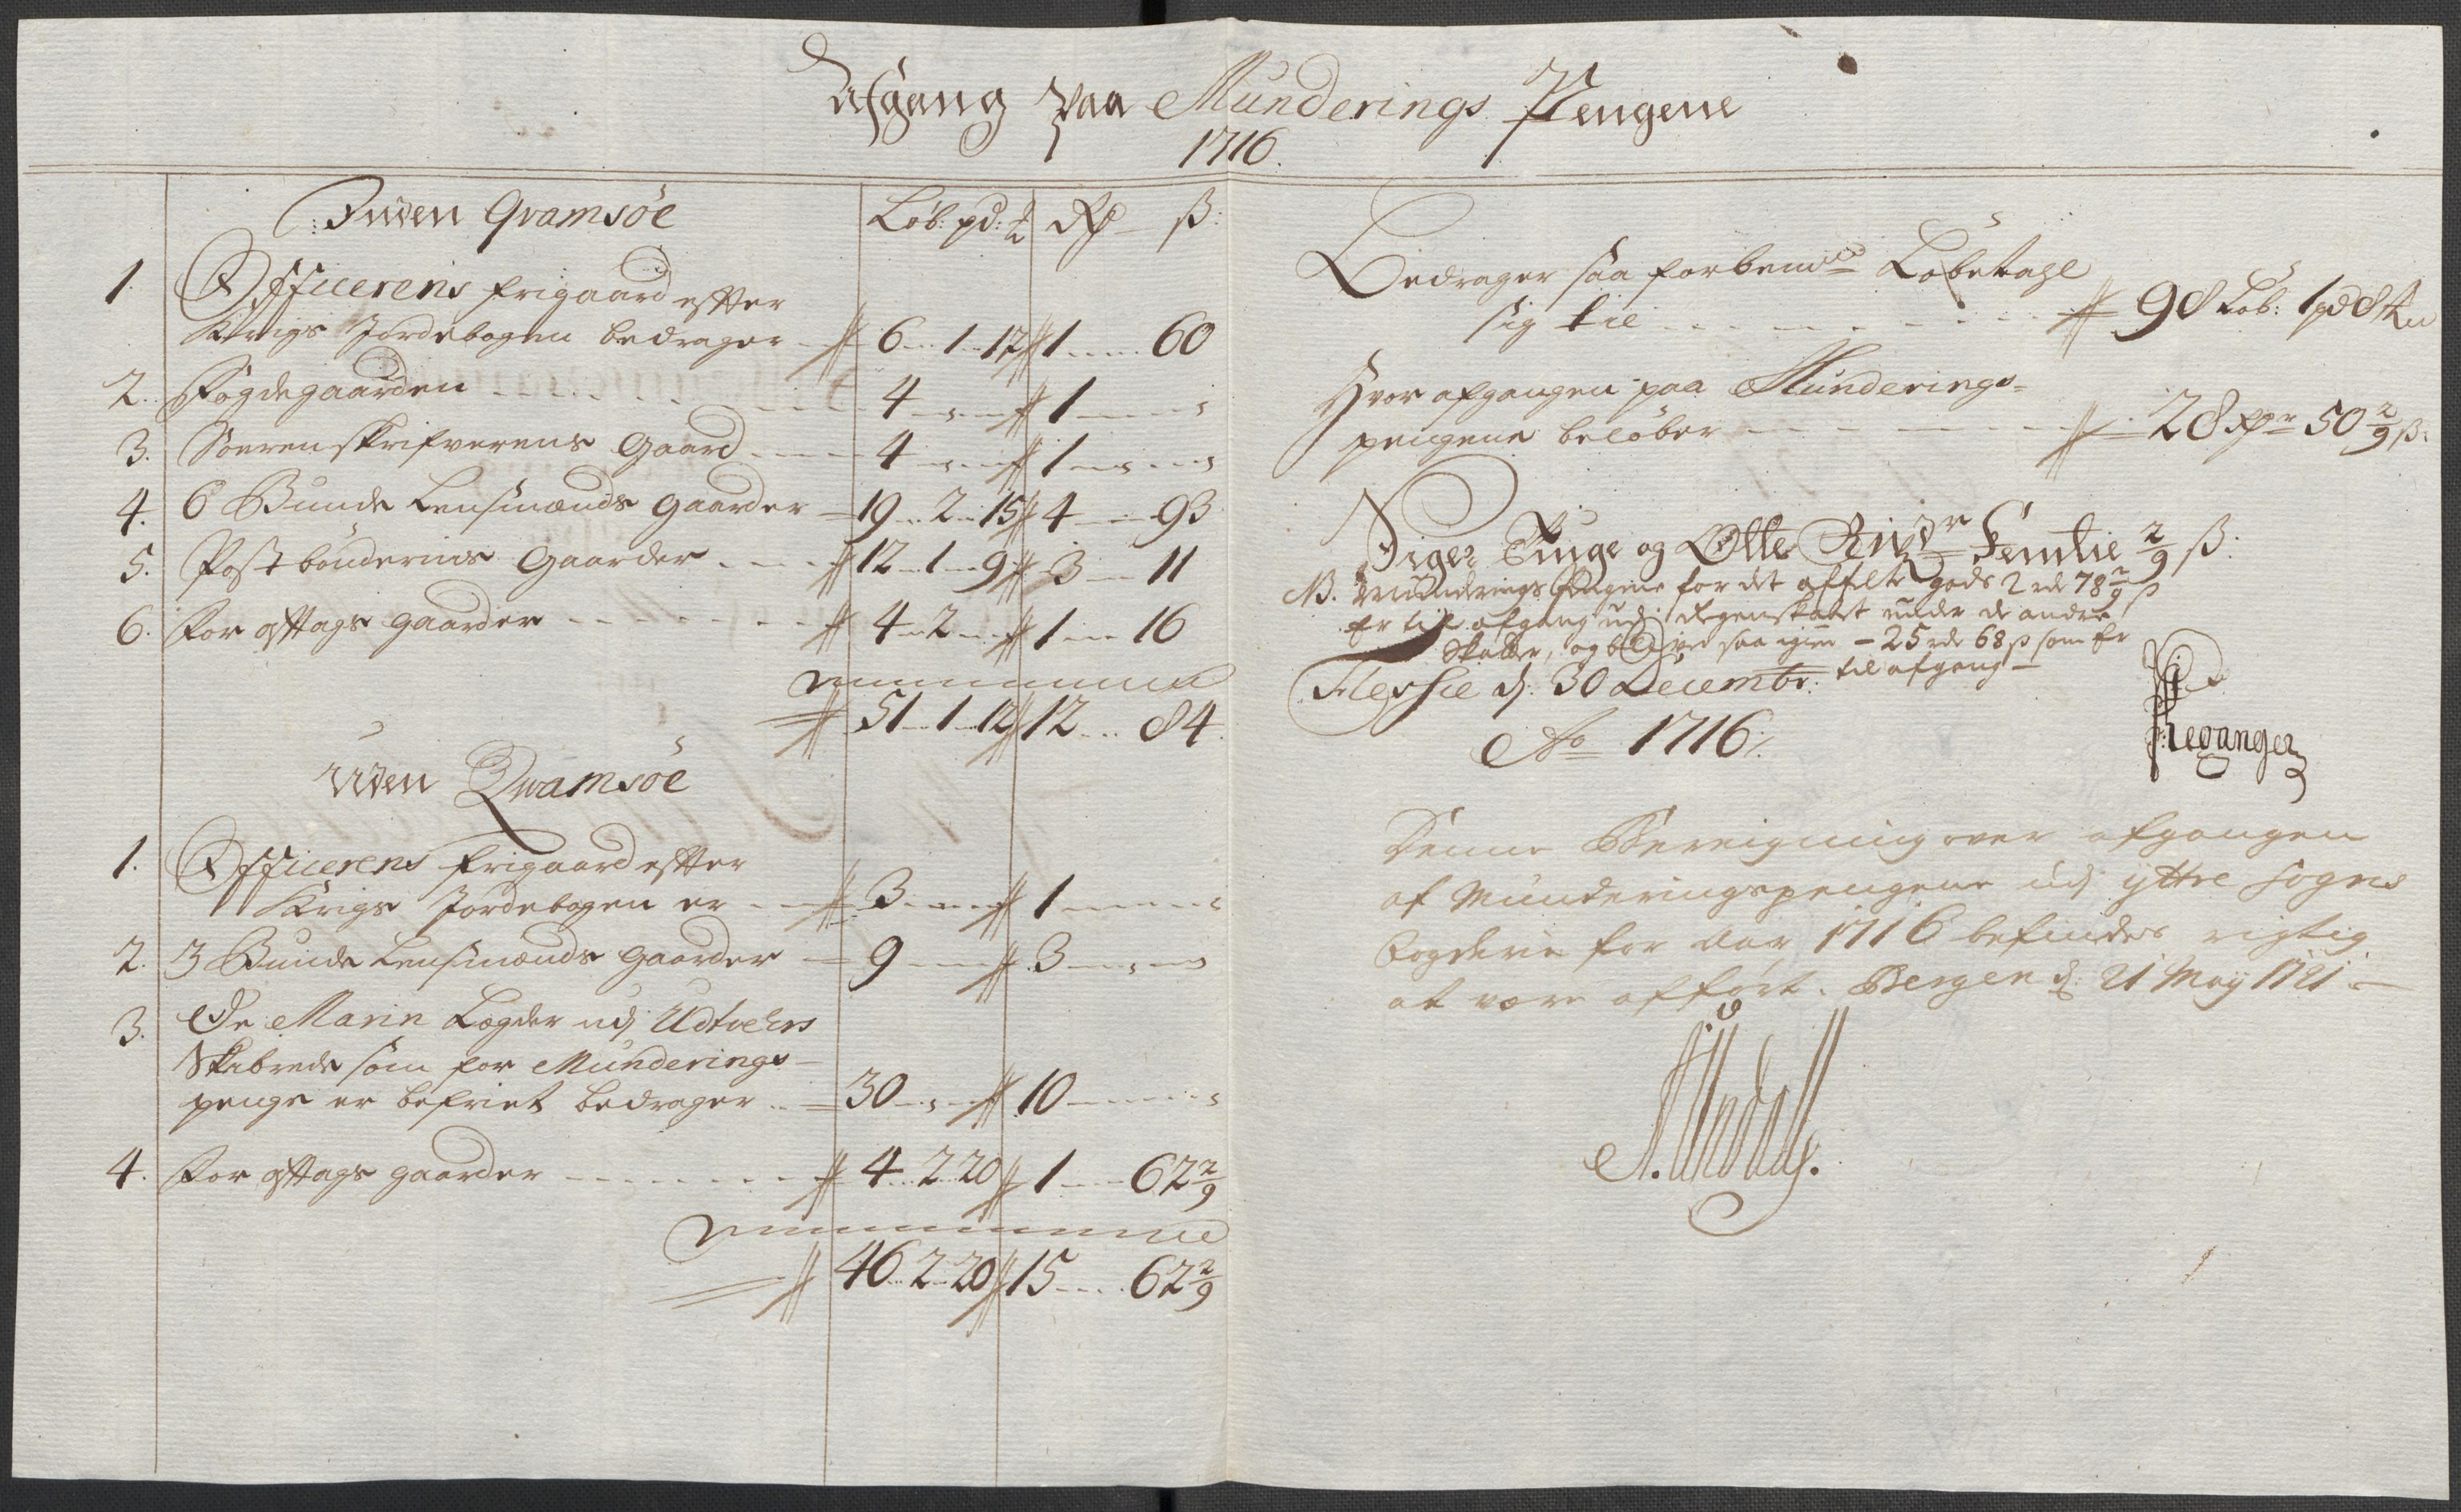 Afgang paa Munderings Pengene
1716.
Inden Qvamsøe Løb: pd: ℔ Rdr ß:
1. Officerens frigaard effter
Krigs Jordebogen bedrager 6 .. 1 .. 17 1 .... 60
2. Fogdegaarden 4 " " 1 "
3. Sorenskrifverens Gaard 4 " " 1 "
4. 6 Bunde Lensmænds Gaarder 19 .. 2 .. 15 4 .... 93
5. Postbøndernes Gaarder 12 .. 1 .. 9 3 .... 11
6. For øttags gaarder 4 .. 2 .. 1 .... 16
51 .. 1 .. 12 12 ... 84.
Uden Qvamsøe
1. Officerens frigaard effter
Krigs Jordebogen er 3 " " 1 "
2. 3 Bunde Lensmænds gaarder 9 " 3 "
3. De Marin Lægder udj Udvehrs
Skibrede som for Munderings-
penge er befriet bedrager 30 " 10 "
4. For øttags gaarder 4 .. 2 20 1 .... 62 2/9
46 .. 2 .. 20 15 .... 62 2/9
Bedrager saa forbemte Løbetahl
sig til 98 Løb: 1 pd 8 ℔
Hvor afgangen paa Munderings-
pengene beløber 28 Rdr 50 2/9 ß:
Siger Tiuge og Otte Rixdr Femtie 2/9 ß:
NB. Munderings Pengene for det affelte gods 2 rd 78 2/9 ß
Er til afgang udj Regenskabet under de andre
Skatter, og blifver saa igien - 25 rdr 68 ß som er
til afgang -
Flershe dj: 30 Decembr:
Ao 1716.
Leganger
Denne Bereigning over afgangen
af Munderingspengene udj yttre Sogns
Fogderie for Aar 1716 befindes rigtig
at være afført. Bergen dj: 21 Maij 1721.